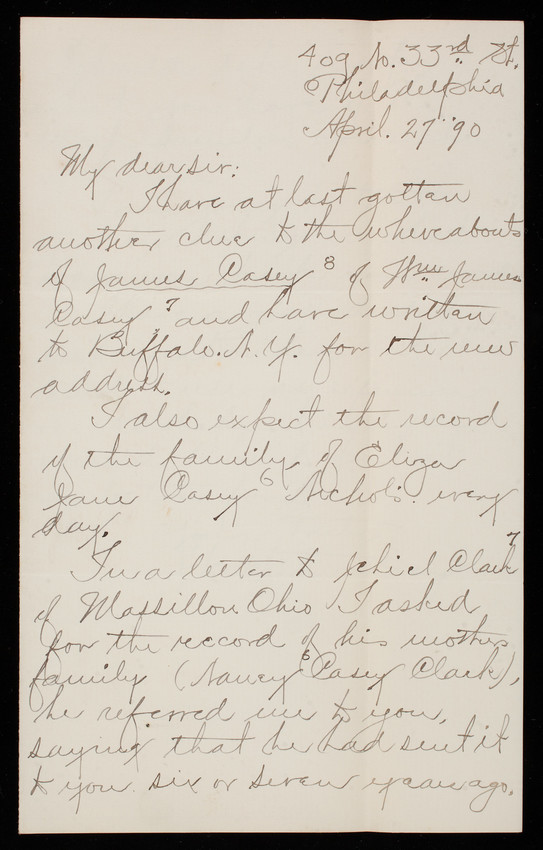 409 N. 33rd St.
Philadelphia
April. 27 '90
My dear sir:
I have at last gotten
another clue to the whereabouts
of James Casey 8 of Wm James
Casey 7, and have written
to Buffalo. N. Y. for the new
address.
I also expect the record
of the family of Eliza
Jane Casey 6 Nichols. every
day.
In a letter to Jehiel Clark 7
of Massillon Ohio I asked
for the record of his mothers
family (Nancy 6 Casey Clark),
he referred me to you,
saying that he had sent it
to you six or seven years ago.